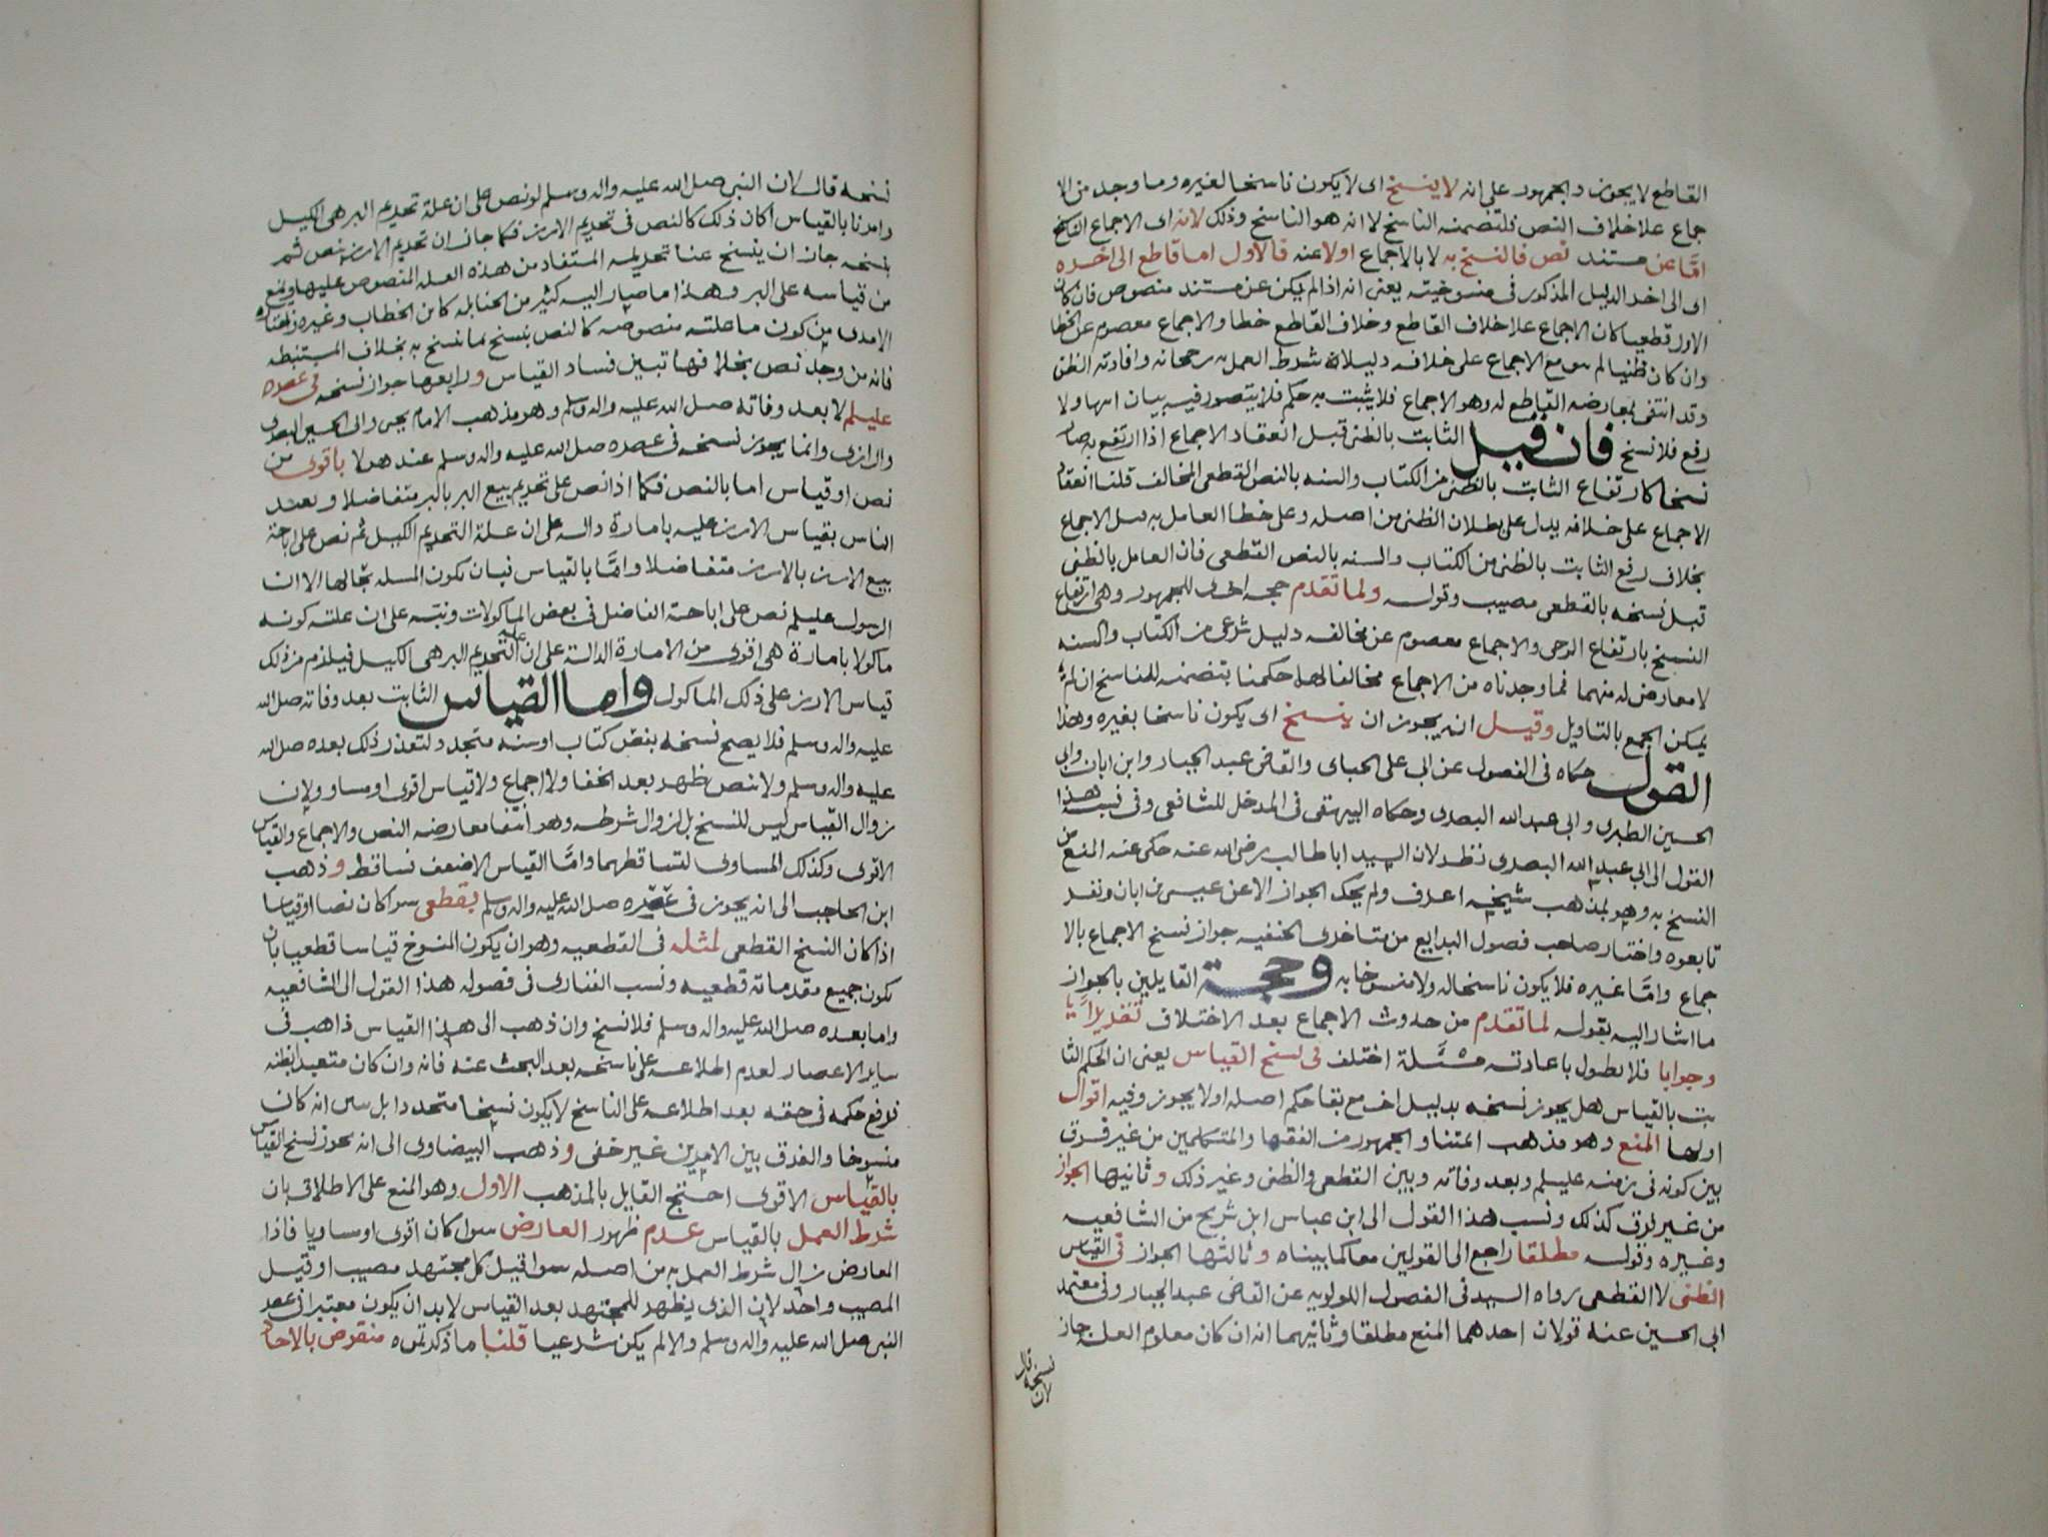 القاطع لا يجوز والجمهور على انه لا ينسخ اى لا يكون ناسخا لغيره وما وجد من الا
جماع على خلاف النص فلتضمنه الناسخ لا انه هو الناسخ وذلك لانه اى الاجماع الناسخ
امّا عن مستند نص فالنسخ به لا بالاجماع اولا عنه فالاول اما قاطع الى اخره
اى الى اخر الدليل المذكور فى منسوخيته يعنى انه اذا لم يكن عن مستند منصوص فان كان
الاول قطعيا كان الاجماع على خلاف القاطع وخلاف القاطع خطا والاجماع معصوم عن الخطا
وان كان ظنيا لم يبق مع الاجماع على خلافه دليلا لان شرط العمل به رجحانه وافادته الظن
وقد انتفى بمعارضه القاطع له وهو الاجماع فلا يثبت به حكم فلا يتصور فيه بيان انتها ولا
رفع فلا نسخ فان قيل الثابت بالظنى قبل انعقاد الاجماع اذا ارتفع به صار
نسخا كارتفاع الثابت بالظنى من الكتاب والسنه بالنص القطعى المخالف قلنا انعقاد
الاجماع على خلافه يدل على بطلان الظنى من اصله وعلى خطا العامل به قبل الاجماع
بخلاف رفع الثابت بالظنى من الكتاب والسنه بالنص القطعى فان العامل بالظنى
قبل نسخه بالقطعى مصيب وقوله ولما تقدم حجه اخرى للجمهور وهى ارتفاع
النسخ بارتفاع الوحى والاجماع معصوم عن مخالفه دليل شرعى من الكتاب والسنه
لا معارض له منهما فما وجدناه من الاجماع مخالفا لهما حكمنا بتضمنه للناسخ ان لم
يمكن الجمع بالتاويل وقيل انه يجوز ان ينسخ اى يكون ناسخا بغيره وهذا
القول حكاه فى الفصول عن ابى على الجباى والقاضى عبد الجبار وابن ابان وابى
الحسين الطبرى وابى عبد الله البصرى وحكاه البيهقى فى المدخل للشافعى وفى نسبه هذا
القول الى ابى عبد الله البصرى نظر لان السيد ابا طالب رضى الله عنه حكى عنه المنع من
النسخ به وهو بمذهب شيخه اعرف ولم يحك الجواز الا عن عيسى بن ابان ونفر
تابعوه واختار صاحب فصول البدايع من متاخرى الحنفيه جواز نسخ الاجماع بالا
جماع وامّا غيره فلا يكون ناسخا له ولا منسوخا به وحجة القايلين بالجواز
ما اشار اليه بقوله لما تقدم من حدوث الاجماع بعد الاختلاف تقديرا
وجوابا فلا نطول باعادته مسئلة اختلف فى نسخ القياس يعنى ان الحكم الثا
بت بالقياس هل يجوز نسخه بدليل اخر مع بقا حكم اصله اولا يجوز وفيه اقوال
اولها المنع وهو مذهب ائمتنا والجمهور من الفقها والمتكلمين من غير فرق
بين كونه فى زمنه عليلم وبعد وفاته وبين القطعى والظنى وغير ذلك وثانيها الجواز
من غير فرق كذلك ونسب هذا القول الى ابن عباس ابن شريح من الشافعيه
وغيره وقوله مطلقا راجع الى القولين معا كما بيناه وثالثها الجواز فى القياس
الظنى لا القطعى رواه السيد فى الفصول اللولويه عن القاضى عبد الجبار وفى معتمد
ابى الحسين عنه قولان احدهما المنع مطلقا وثانيهما انه ان كان معلوم العله جاز
نسخه قال لان
نسخه قال لان النبى صلى الله عليه واله وسلم لو نص على ان علة تحريم البر هى الكيل
وامرنا بالقياس لكان ذلك كالنص فى تحريم الارز فكما جاز ان تحريم الارز بنص ثم
ينسخه جاز ان ينسخ عنا تحريمه المستفاد من هذه العله المنصوص عليها ويمنع
من قياسه على البر وهذا ما صار اليه كثير من الحنابله كابن الخطاب وغيره واختاره
الامدى من كون ما علته منصوصه كالنص ينسخ بما نسخ به بخلاف المستنبطه
فانه من وجد نص بخلافها تبين فساد القياس ورابعها جواز نسخه فى عصره
عليلم لا بعد وفاته صلى الله عليه واله وسلم وهو مذهب الامام يحيى وابى الحسين البصرى
والرازى وانما يجوز نسخه فى عصره صلى الله عليه واله وسلم عند هولا باقوى من
نص او قياس اما بالنص فكما اذا نص على تحريم بيع البر بالبر متفاضلا وتعبد
الناس بقياس الارز عليه بامارة داله على ان علة التحريم الكيل ثم نص على اباحة
بيع الارز بالارز متفاضلا وامّا بالقياس فبان تكون المسله بحالها الا ان
الرسول عليلم نص على اباحة التفاضل فى بعض الماكولات ونبّه على ان علته كونه
ماكولا بامارة هى اقوى من الامارة الدالة على ان علة التحريم البر هى الكيل فيلزم من ذلك
قياس الارز على ذلك الماكول واما القياس الثابت بعد وفاته صلى الله
عليه واله وسلم فلا يصح نسخه بنص كتاب او سنه متجدد لتعذر ذلك بعده صلى الله
عليه واله وسلم ولا بنص ظهر بعد الخفا ولا اجماع ولا قياس اقوى او مساو ولان
زوال القياس ليس للنسخ بل لزوال شرطه وهو انتفا معارضه النص والاجماع والقياس
الاقوى وكذلك المساوى لتساقطهما وامّا القياس الاضعف فساقط وذهب
ابن الحاجب الى انه يجوز فى عصره صلى الله عليه واله وسلم بقطعى سوا كان نصا او قياسا
اذا كان النسخ القطعى لمثله فى القطعيه وهو ان يكون المنسوخ قياسا قطعيا بان
تكون جميع مقدماته قطعيه ونسب الفنارى فى فصوله هذا القول الى الشافعيه
واما بعده صلى الله عليه واله وسلم فلا نسخ وان ذهب الى هذا القياس ذاهب فى
ساير الاعصار لعدم اطلاعه على ناسخه بعد البحث عنه فانه وان كان متعبد ابظنه
فرفع حكمه فى حقه بعد اطلاعه على الناسخ لا يكون نسخا متجددا بل تبين انه كان
منسوخا والفرق بين الامرين غير خفى وذهب البيضاوى الى انه يجوز نسخ القياس
بالقياس الاقوى احتج القايل بالمذهب الاول وهو المنع على الاطلاق بان
شرط العمل بالقياس عدم ظهور العارض سوا كان اقوى او مساويا فاذا
العارض زال شرط العمل به من اصله سوا قيل كل مجتهد مصيب او قيل
المصيب واحد لان الذى يظهر للمجتهد بعد القياس لابد ان يكون معتبرا فى عهد
النبى صلى الله عليه واله وسلم والا لم يكن شرعيا قلنا ما ذكرتموه منقوض بالاحاد